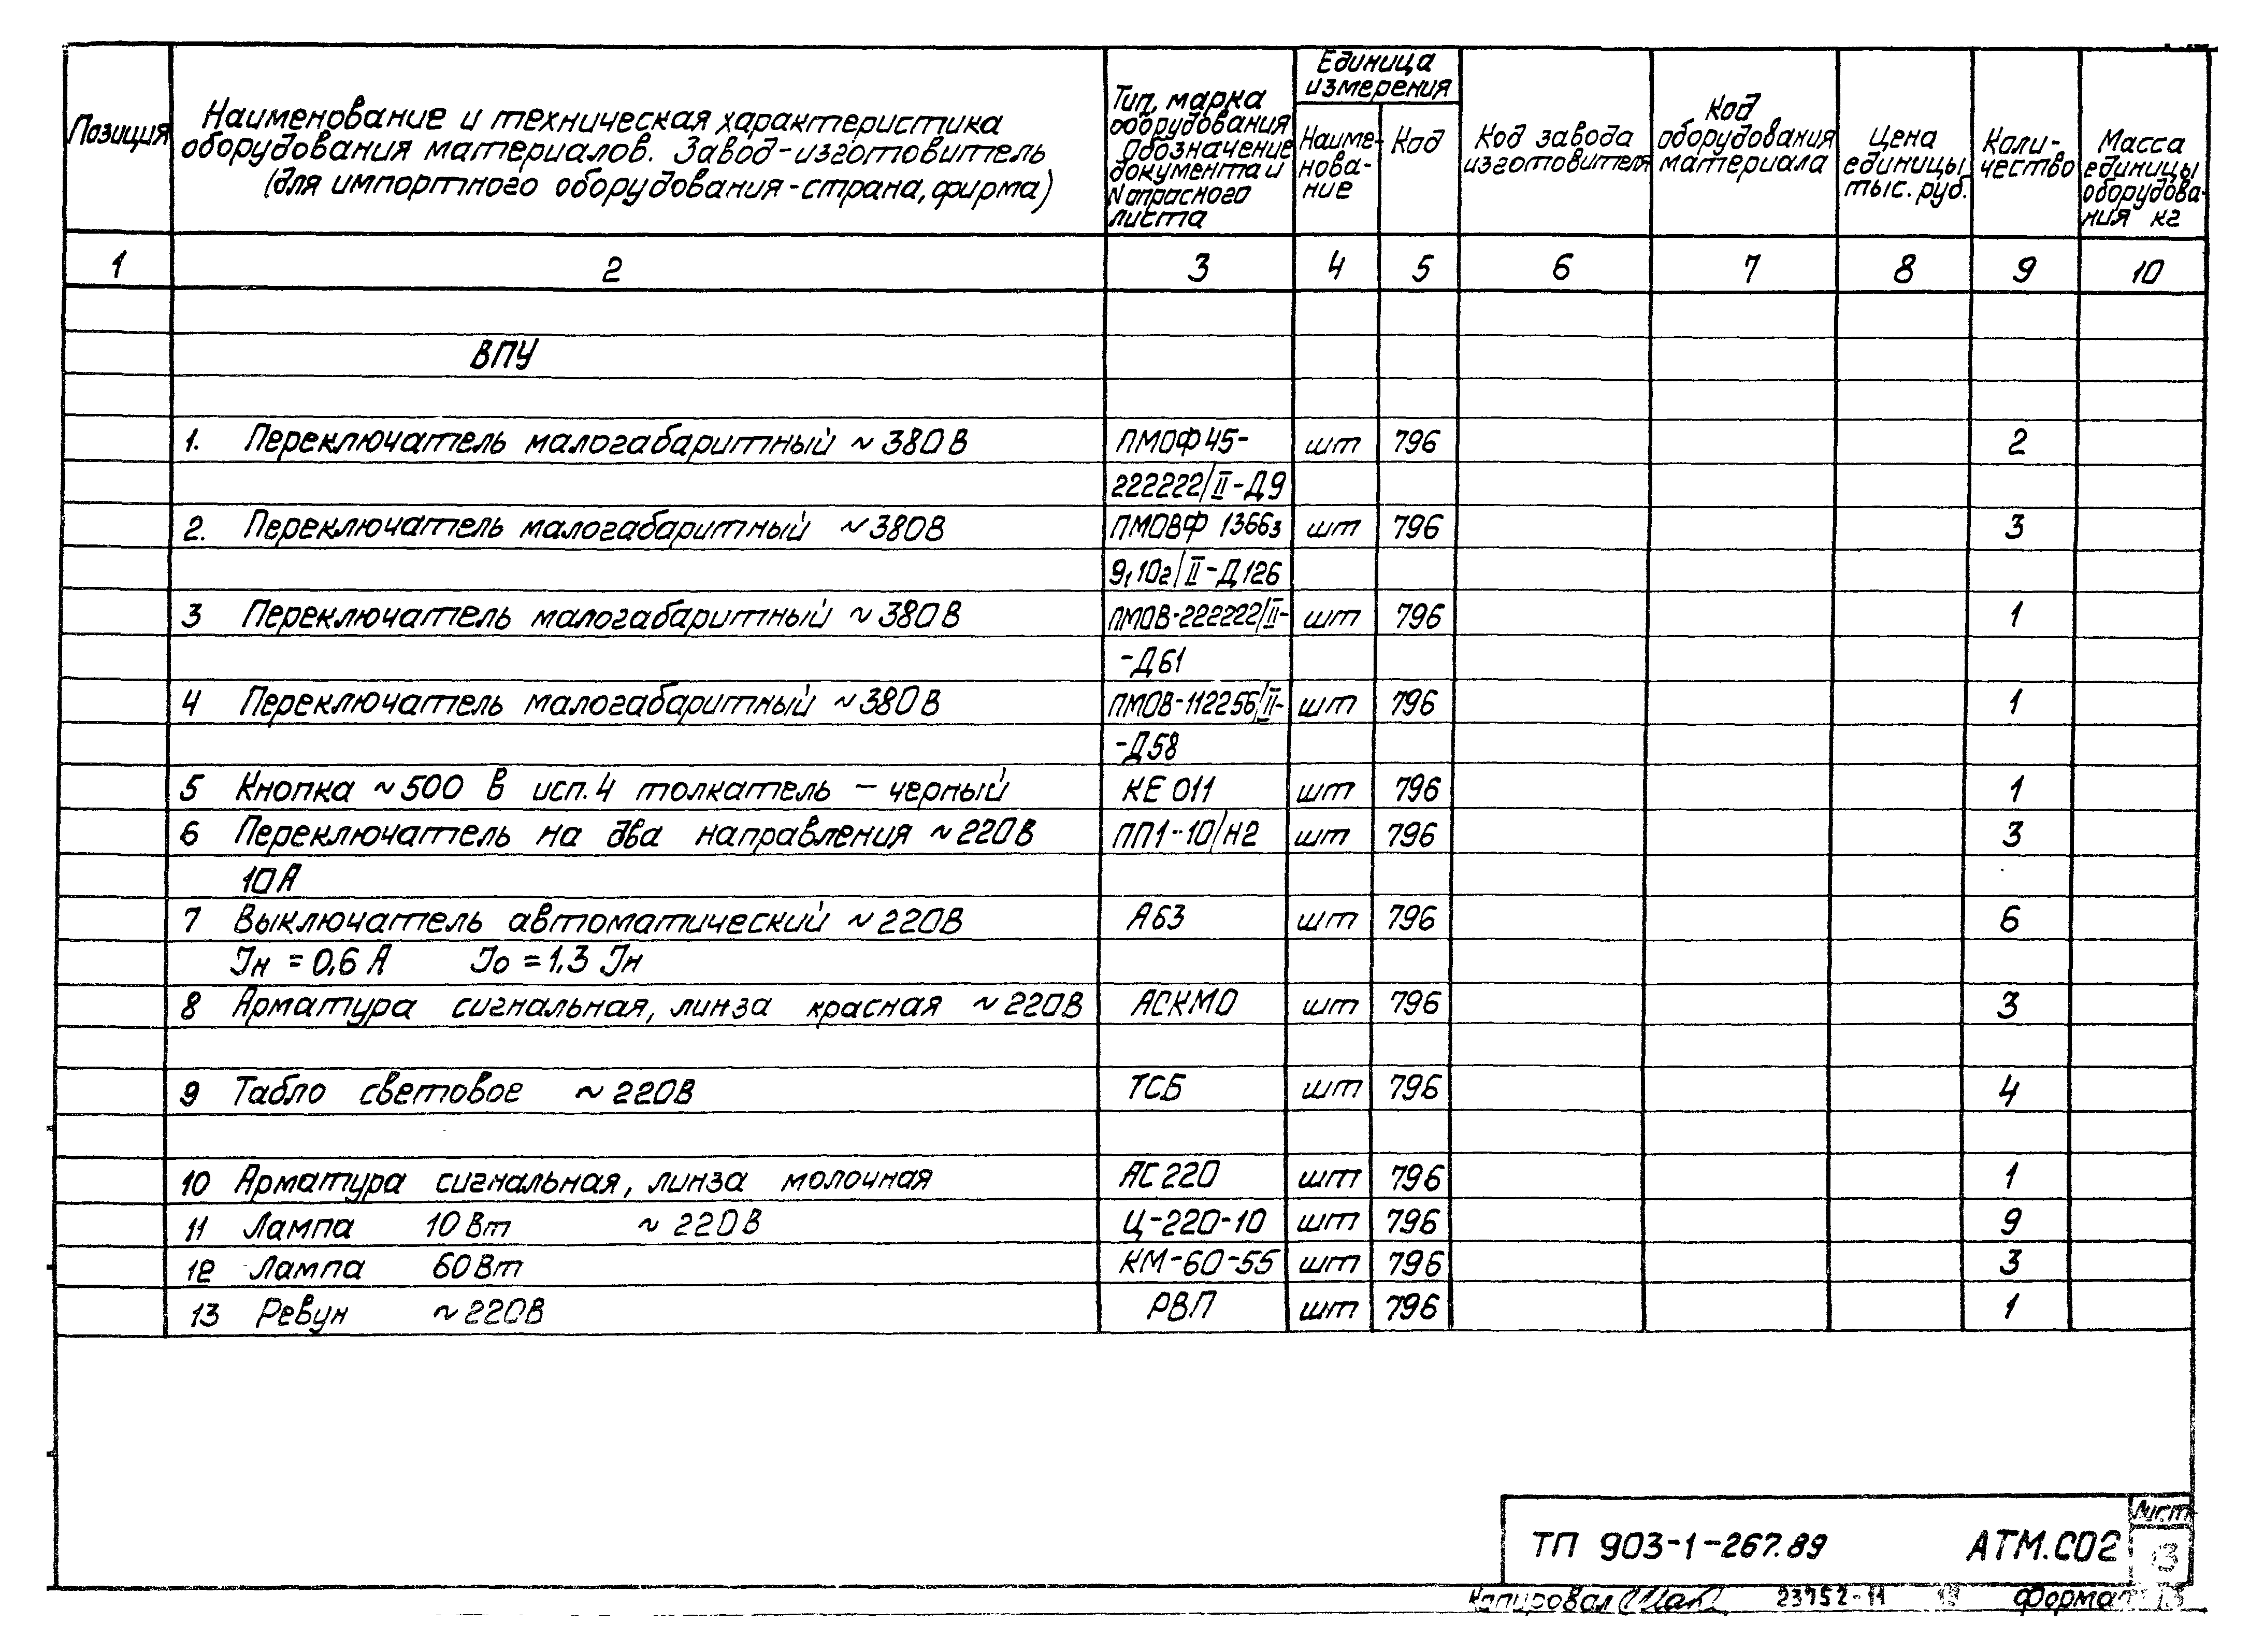 Позиция
Наименование и техническая характеристика
оборудования материалов. Завод-изготовитель
(для импортного оборудования-страна, фирма)
Тип, марка
оборудования
Обозначение
документа и
N опрасного
листа
Единица
измерения
Наиме-
нова-
ние
Код
Код завода
изготовителя
Код
оборудования
материала
Цена
единицы
тыс. руб.
Коли-
чество
Масса
единицы
оборудова-
ния кг
1 2 3 4 5 6 7 8 9 10
ВПУ
1. Переключатель малогабаритный ~380В ПМОФ45- шт 796 2
222222/II-Д9
2. Переключатель малогабаритный ~380В ПМОВФ 1366з шт 796 3
9,10г/II-Д126
3 Переключатель малогабаритный ~380В ПМОВ-222222/II- шт 796 1
-Д61
4 Переключатель малогабаритный ~380В ПМОВ-112256/II- шт 796 1
-Д58
5 Кнопка ~500 В исп.4 толкатель - черный КЕ 011 шт 796 1
6 Переключатель на два направления ~220В ПП1-10/Н2 шт 796 3
10А
7 Выключатель автоматический ~220В А63 шт 796 6
Jн = 0,6 А Jо = 1.3 Jн
8 Арматура сигнальная, линза красная ~220В АСКМО шт 796 3
9 Табло световое ~220В ТСБ шт 796 4
10 Арматура сигнальная, линза молочная АС220 шт 796 1
11 Лампа 10Вт ~220В Ц-220-10 шт 796 9
12 Лампа 60Вт КМ-60-55 шт 796 3
13 Ревун ~220В РВП шт 796 1
Лист
ТП 903-1-267.89 АТМ.СО2 13
Копировал 23752-11 Формат